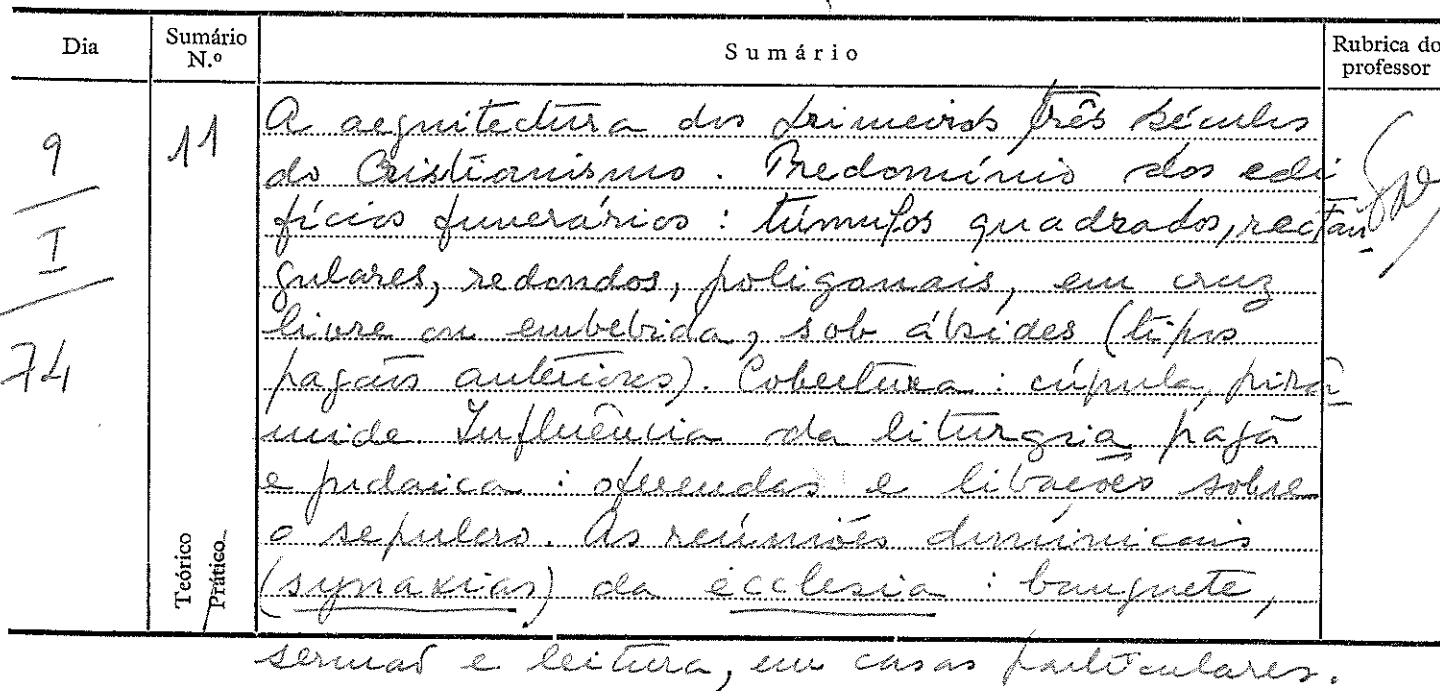 Dia
Sumário N.º
Sumário
Rubrica do professor
9
I
74
11
A arquitectura dos primeiros três séculos
do Cristianismo. Predomínio dos edi
fícios funerários: túmulos quadrados, rectân-
gulares, redondos, poligonais, em cruz
livre ou embebida, sob ábsides (tipos
pagãos anteriores). Cobertura: cúpula, pirâ-
mide. Influência da liturgia pagã
e judaica: oferendas e libações sobre
o sepulcro. As reüniões dominicais
(synaxias) da ecclesia: banquete,
sermão e leitura, em casas particulares.
Teórico
Prático